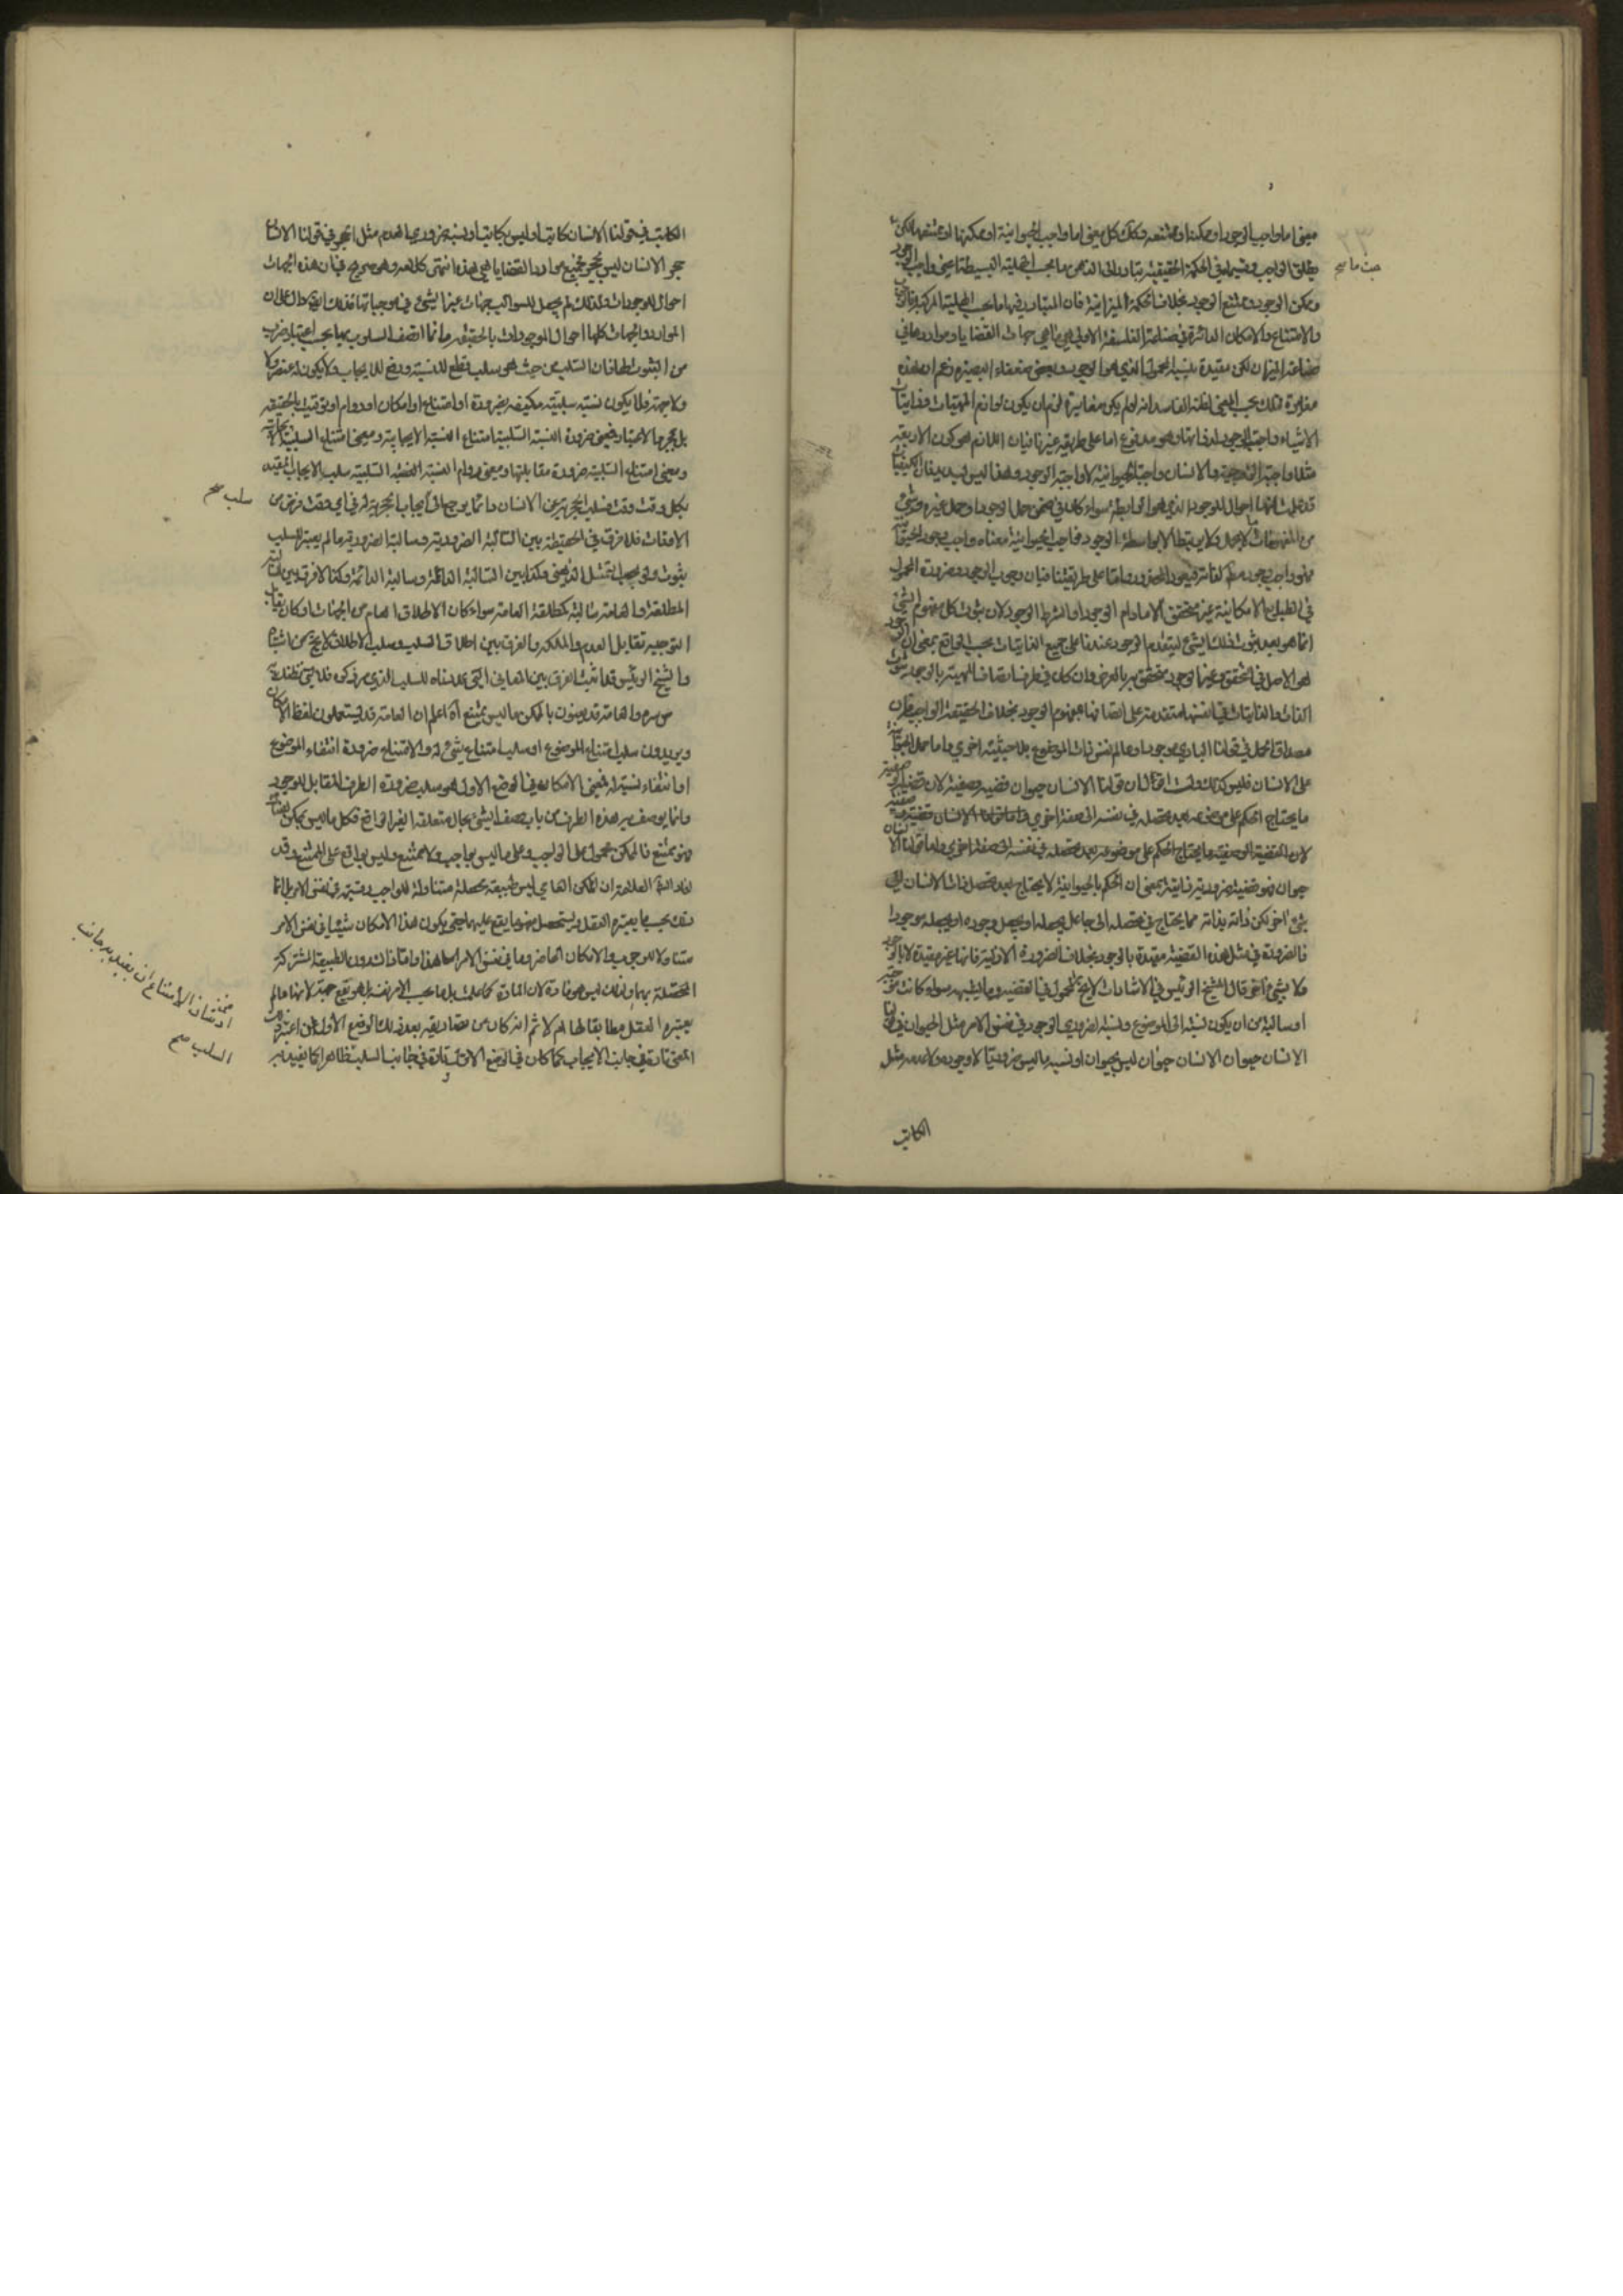 معنى اما واجب الوجود او ممكنه او ممتنعه وكذلك كل معنى اما واجب الحيوانية او ممكنها او ممتنعها لكن
يطلق الواجب وقسيماه في الحكمة الحقيقية يتبادر الى الذهن ما بحسب الهلية البسيطة اعني واجب الوجود
وممكن الوجود وممتنع الوجود بخلاف الحكمة الميزانية فان المتبادر فيها ما بحسب الهلية المركبة
والامتناع والامكان الدائرة في صناعة الفلسفة الاولى هي ما هي جهات القضايا وموادها في
صناعة الميزان لكن مقيدة بنسبة المحمول الذي هو الوجود وبعض ضعفاء البصيرة زعم ان هذه
مغايرة لتلك بحسب المعنى لظنه الفاسد انه لو لم يكن مغايرة لزم ان يكون لوازم المهيات وذاتيات
الاشياء واجبة الوجود لذواتها وهو مدفوع اما على طريقة غيرنا فبان اللازم هو كون الاربعة
مثلا واجبة الزوجية والانسان واجبة الحيوانية لا واجبة الوجود وهذا ليس بسديد
قد علمت انها احوال للوجود الذي هو الرابطة سواء كان في ضمن حمل الوجود او حمل غيره
من المفهومات ولا يرتبط الا بواسطة الوجود فواجب الحيوانية معناه واجب وجود الحيوانية
فهو واجب وجود لذاته فيعود المحذور واما على طريقتنا فبان وجوب الوجود وضرورة المحمول
في الطبايع الامكانية غير متحقق الا مادام الوجود او بشرط الوجود لان ثبوت كل مفهوم لشيء
انما هو بعد ثبوت ذلك الشيء لتقدم الوجود عندنا على جميع الذاتيات بحسب الواقع بمعنى ان الوجود
هو الاصل في التحقق وغيرها وجود متحقق به بالعرض وان كان في ظرف اتصاف المهية بالوجود ثبوت
الذات والذاتيات في انفسها متقدمة على اتصافها بمفهوم الوجود بخلاف الحقيقة الواجبية فان
مصداق الحمل في قولنا الباري موجود وعالم نفس ذات الموضوع بلا حيثية اخرى واما حمل الحيوانية
على الانسان فليس كذلك ولست اقول ان قولنا الانسان حيوان قضية وصفية لان القضية الوصفية
ما يحتاج الحكم على موضوعه بعد تحصله في نفسه الى صفة اخرى
لان القضية الوصفية ما يحتاج الحكم على موضوعه بعد تحصله في نفسه الى صفة اخرى واما قولنا الانسان
حيوان فهو قضية ضرورية ذاتية بمعنى ان الحكم بالحيوانية لا يحتاج بعد تحصل ذات الانسان الى
شيء اخر لكن ذاته بذاته مما يحتاج في تحصله الى جاعل يجعله او يجعل وجوده او يجعله موجودا
فالضرورة في مثل هذه القضية مقيدة بالوجود بخلاف الضرورة الازلية فانها غير مقيدة لا بالوجود
ولا بشيء اخر وقال الشيخ الرئيس في الاشارات لا يخلو المحمول في القضية وما يشبهه سواء كانت موجبة
او سالبة من ان يكون نسبته الى الموضوع نسبة الضروري الوجود في نفس الامر مثل الحيوان في قولنا
الانسان حيوان الانسان حيوان ليس بحيوان او نسبة ما ليس ضروريا لا وجوده ولا عدمه مثل
الكاتب
حيث ما صح
الكاتب في قولنا الانسان كاتب او ليس بكاتب او نسبة ضروري العدم مثل الحجر في قولنا الانسان
حجر الانسان ليس بحجر فجميع مواد القضايا هي هذه انتهى كلامه وهو صريح في ان هذه الجهات
احوال للوجودات ولذلك لم يجعل للسوالب جهات غير التي في موجباتها فذلك دال على ان
المواد والجهات كلها احوال الموجودات بالحقيقة وانما اتصف السلوب بها بحسب اعتبار ضرب
من الثبوت لها فان السلب من حيث هو سلب قطع للنسبة ورفع للايجاب ولا يكون له عنصر ولا
ولا جهة فلا يكون نسبة سلبية مكيفة بضرورة او امتناع او امكان او دوام او توقيت بالحقيقة
بل بمجرد الاعتبار فمعنى ضرورة النسبة السلبية امتناع النسبة الايجابية ومعنى امتناع السلبية
ومعنى امتناع السلبية ضرورة مقابلتها ومعنى دوام النسبة السلبية سلب الايجاب المقيد
بكل وقت وقت فسلب الحجرية عن الانسان دائما يرجع الى ايجاب الحجرية له في اي وقت فرض من
الاوقات فلا فرق في الحقيقة بين السالبة الضرورية وسالبة الضرورية ما لم يعتبر للسلب
ثبوت ولو بحسب التمثل الذهني وكذا بين السالبة الدائمة وسالبة الدائمة وكذا لا فرق بين السالبة
المطلقة العامة وسالبة المطلقة العامة سواء كان الاطلاق العام من الجهات او كان يقابل
التوجيه تقابل العدم والملكة والفرق بين اطلاق السلب وسلب الاطلاق لا يخلو من اشتباه
والشيخ الرئيس قد اثبت الفرق بين المعاني التي عددناه للسلب الذي مر ذكره
من مره والعامة قد يعنون بالممكن ما ليس بممتنع آه اعلم ان العامة قد يستعملون لفظ الامكان
ويريدون سلب امتناع الموضوع او سلب امتناع شيء له والامتناع ضرورة انتفاء الموضوع
او انتفاء نسبة له فمعنى الامكان في الوضع الاول هو سلب ضرورة الطرف المقابل للوجود
وانما يوصف به هذه الطرف من باب وصف الشيء بحال متعلقه الغير الواقع فكل ما ليس بممكن
فهو بممتنع فالممكن محمول على الواجب وعلى ما ليس بواجب ولا ممتنع وليس بواقع على الممتنع وقد
افاد العلامة ان الممكن العامي ليس طبيعة محصلة متناولة للواجب وقسيمه في نفس الامر بل انما
ذلك بحسب ما يعتبره العقل ويستحصل مفهوما يقع عليها حتى يكون هذا الامكان شيئا في نفس الامر
متناولا للوجوب والامكان الخاص وما في نفس الامر اما هذا واما ذاك دون الطبيعة المشتركة
المحصلة بهما ولذلك ليس هو مادة لان المادة كما علمت بل ما بحسب الامر نفسه بل هو يقع جهة لانها ما لم
يعتبره العقل مطابقا لها ام لا ثم انه كان من مصاديقه بعد ذلك الوضع الاول ان اعتبر هذا
المعنى تارة في جانب الايجاب كما كان في الوضع الاول وتارة في جانب السلب ظاهرا كما يفيد به
سلب صح
اذ شان الامتناع ان يقيد به جانب
السلب صح